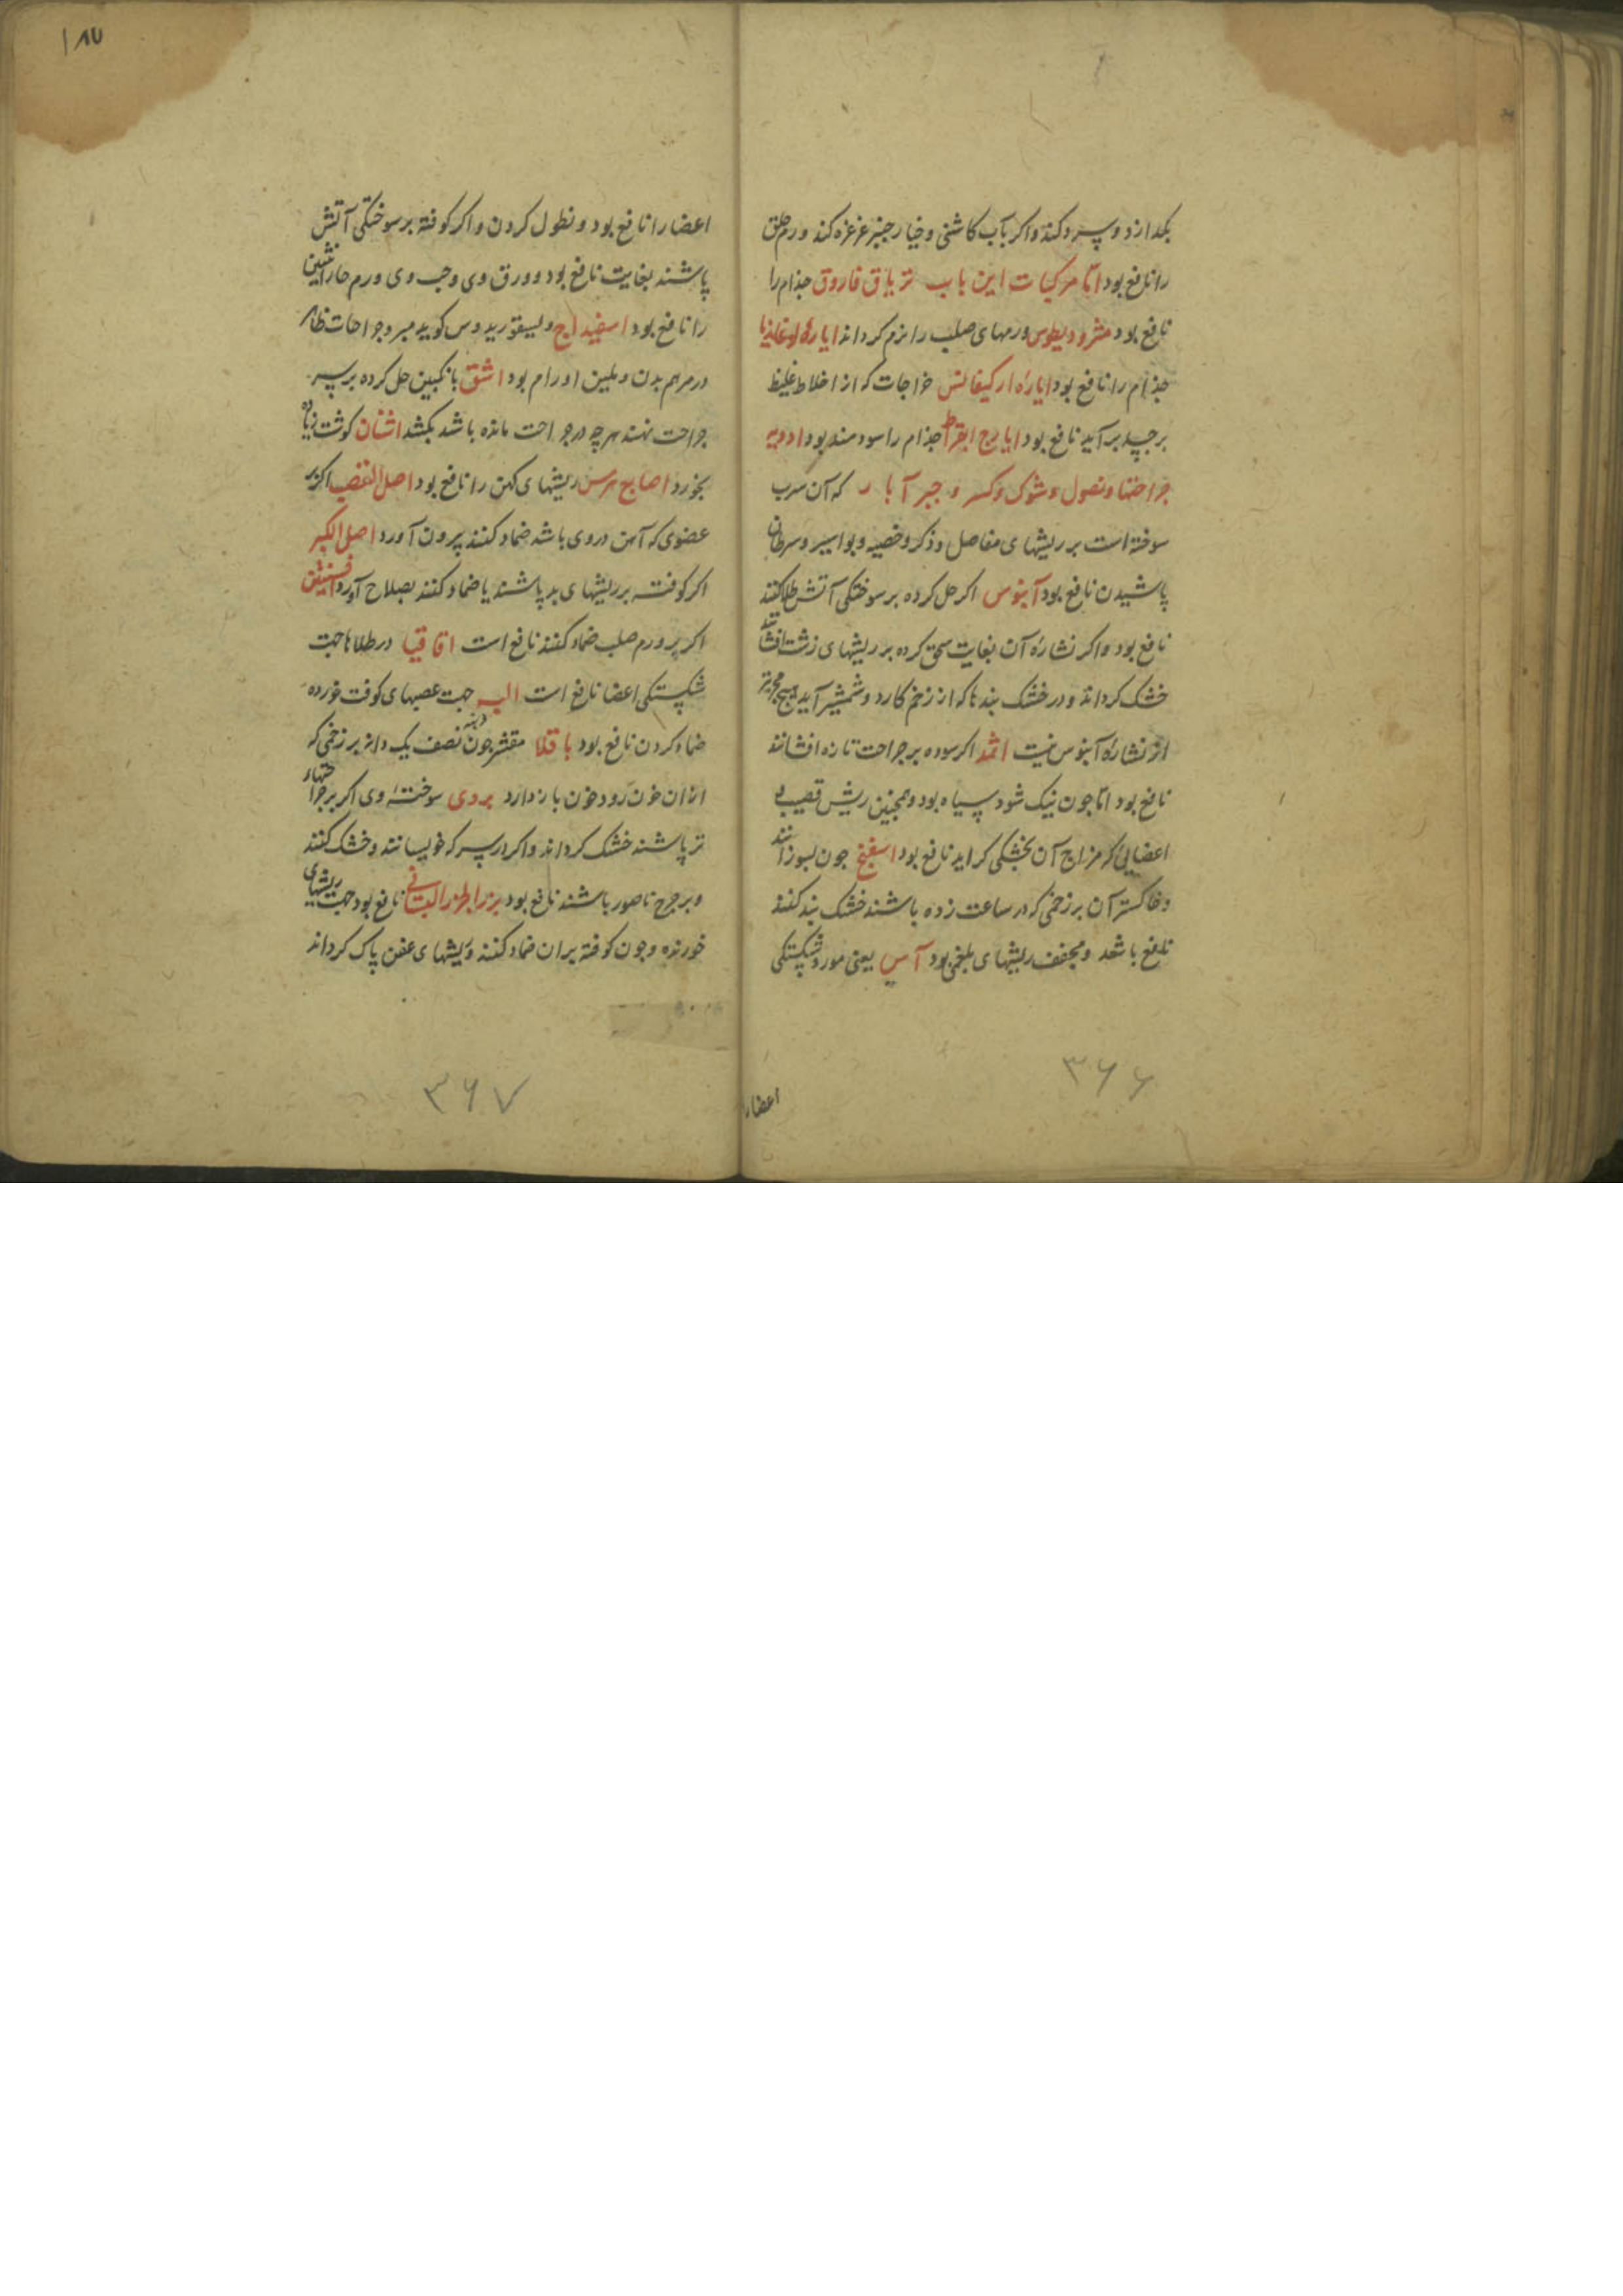 بکدازد و سرد کند و اکر بآب کاشنی و خیارجنبر غرغره کند ورم حلق
را نافع بود اما مرکبات این باب تریاق فاروق جذام را
نافع بود مثرودیطوس ورمهای صلب را نرم کرداند ایاره لوغاذیا
جذام را نافع بود ایاره ارکیغانس خراجات که از اخلاط غلیظ
بر جسد برآید نافع بود ایارج ابقراط جذام را سودمند بود ادویه
جراحتها و نصول و شوک و کسر و جبر آبار که آن سرب
سوخته است بر ریشهای مفاصل و ذکر و خصیه و بواسیر و سرطان
پاشیدن نافع بود آبنوس اکر حل کرده بر سوختکی آتش طلا کنند
نافع بود و اکر نشاره آن بغایت سحق کرده بر ریشهای زشت افشانند
خشک کرداند و در خشک بندها که از زخم کارد و شمشیر آید هیچ مجربتر
از نشاره آبنوس نیست اثمد اکر سوده بر جراحت تازه افشانند
نافع بود اما جون نیک شود سیاه بود و همجنین ریش قصیب
اعضایی که مزاج آن بخشکی کراید نافع بود اسفنج جون بسوزانند
و خاکستر آن بر زخمی که در ساعت زده باشند خشک بند کنند
نافع باشد و مجفف ریشهای بلغمی بود آس یعنی مورد شکستکی
اعضاء
۳۶۶
۱۸۷
اعضا را نافع بود و نطول کردن و اکر کوفته بر سوختکی آتش
پاشند بغایت نافع بود و ورق وی و حب وی ورم حار انثیین
را نافع بود اسفیداج و لیسقوریدوس کوید مبرد جراحات ظاهر
در مرهم بدن و ملین اورام بود اشق بانکبین حل کرده بر سر
جراحت نهند هرچه در جراحت مانده باشد بکشد اشنان کوشت زیاده
بخورد اصابع هرمس ریشهای کهن را نافع بود اصل القصب اکر بر
عضوی که آهن در وی باشد ضماد کنند بیرون آورد اصل الکبر
اکر کوفته بر ریشهای بد پاشند یا ضماد کنند بصلاح آورد افسنتین
اکر بر ورم صلب ضماد کنند نافع است اقاقیا در طلاها جهت
شکستکی اعضا نافع است الیه جهت عصبهای کوفت خورده
ضماد کردن نافع بود باقلا مقشر جون نصف یک دانه بر زخمی که
از ان خون رود خون باز دارد بردی سوخته وی اکر بر جراحتهای
تر پاشند خشک کرداند و اکر در سرکه خویسانند و خشک کنند
و بر جرح ناصور باشند نافع بود نافع بود جهت ریشهای
خورنده و جون کوفته بران ضماد کنند و ریشهای عفن پاک کرداند
۳۶۷